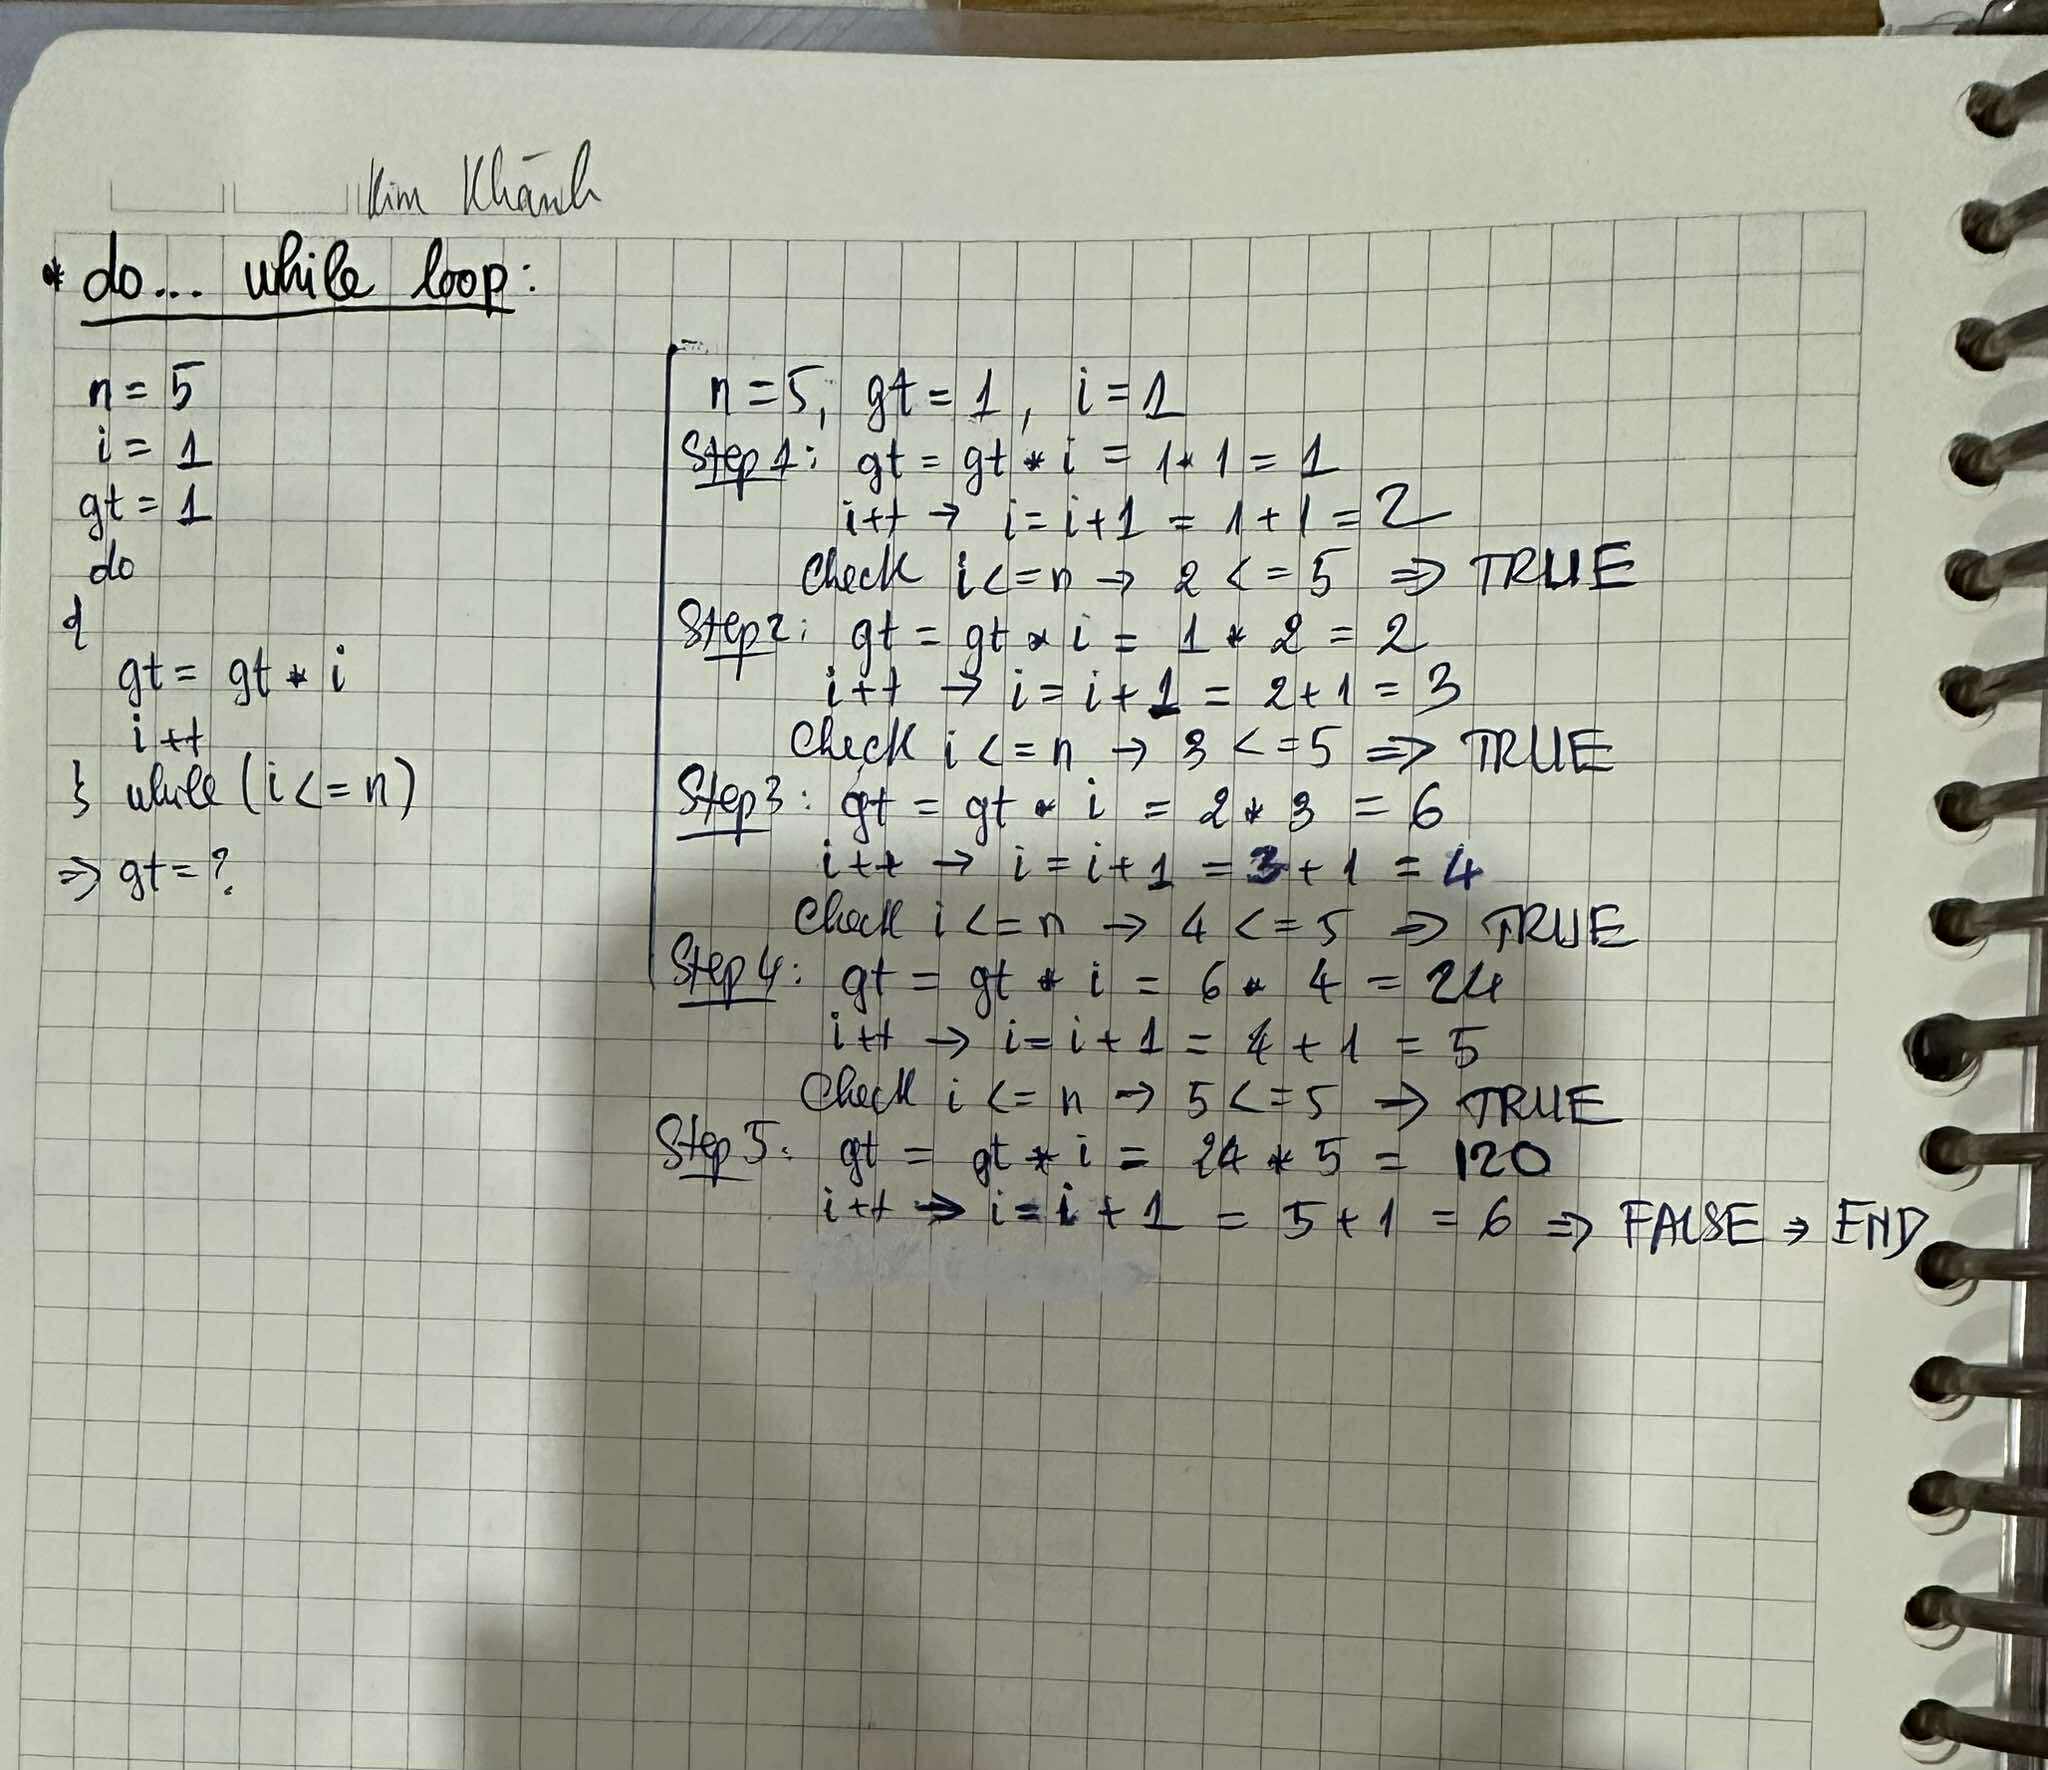 Kim Khánh
* do... while loop:
n = 5
i = 1
gt = 1
do
{
gt = gt * i
i ++
} while (i <= n)
=> gt = ?
n = 5, gt = 1, i = 1
Step 1: gt = gt * i = 1 * 1 = 1
i++ → i = i + 1 = 1 + 1 = 2
Check i <= n → 2 <= 5 => TRUE
Step 2: gt = gt * i = 1 * 2 = 2
i++ → i = i + 1 = 2 + 1 = 3
Check i <= n → 3 <= 5 => TRUE
Step 3: gt = gt * i = 2 * 3 = 6
i++ → i = i + 1 = 3 + 1 = 4
Check i <= n → 4 <= 5 => TRUE
Step 4: gt = gt * i = 6 * 4 = 24
i++ → i = i + 1 = 4 + 1 = 5
Check i <= n → 5 <= 5 => TRUE
Step 5: gt = gt * i = 24 * 5 = 120
i++ → i = i + 1 = 5 + 1 = 6 => FALSE → END